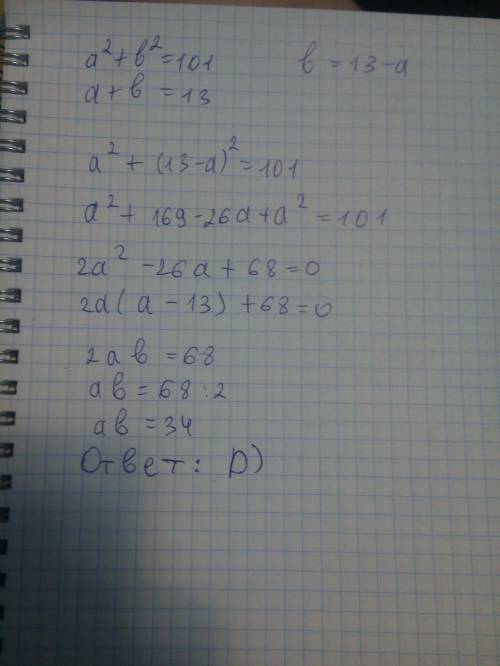 a² + b² = 101 b = 13 - a
a + b = 13
a² + (13-a)² = 101
a² + 169 - 26a + a² = 101
2a² - 26a + 68 = 0
2a(a - 13) + 68 = 0
2ab = 68
ab = 68 : 2
ab = 34
Ответ: D)